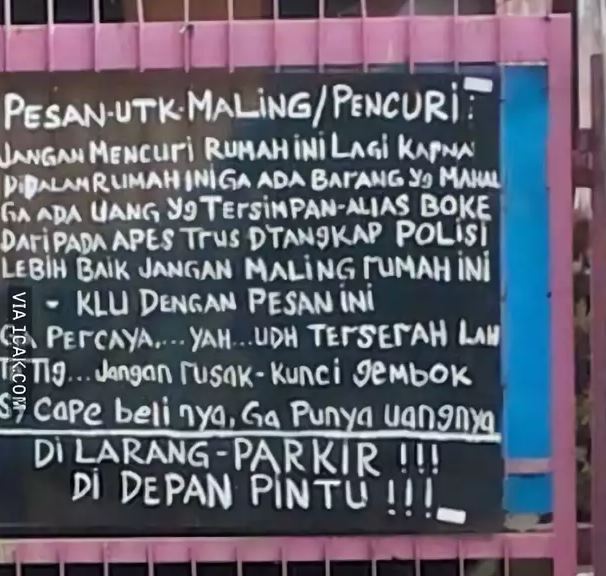 PESAN-UTK-MALING/PENCURI:
JANGAN MENCURI RUMAH INI LAGI KARNA
DIDALAM RUMAH INI GA ADA BARANG Yg MAHAL
GA ADA UANG Yg TERSIMPAN-ALIAS BOKE
DARIPADA APES TRUS DTANgKAP POLISI
LEBIH BAIK JANGAN MALING RUMAH INI
- KLU DENGAN PESAN INI
GA PERCAYA,...YAH...UDH TERSERAH LAH
Tig...Jangan rusak-Kunci gembok
Cape beli nya, Ga Punya uangnya
DI LARANG-PARKIR !!!
DI DEPAN PINTU !!!
VIA 1CAK.COM